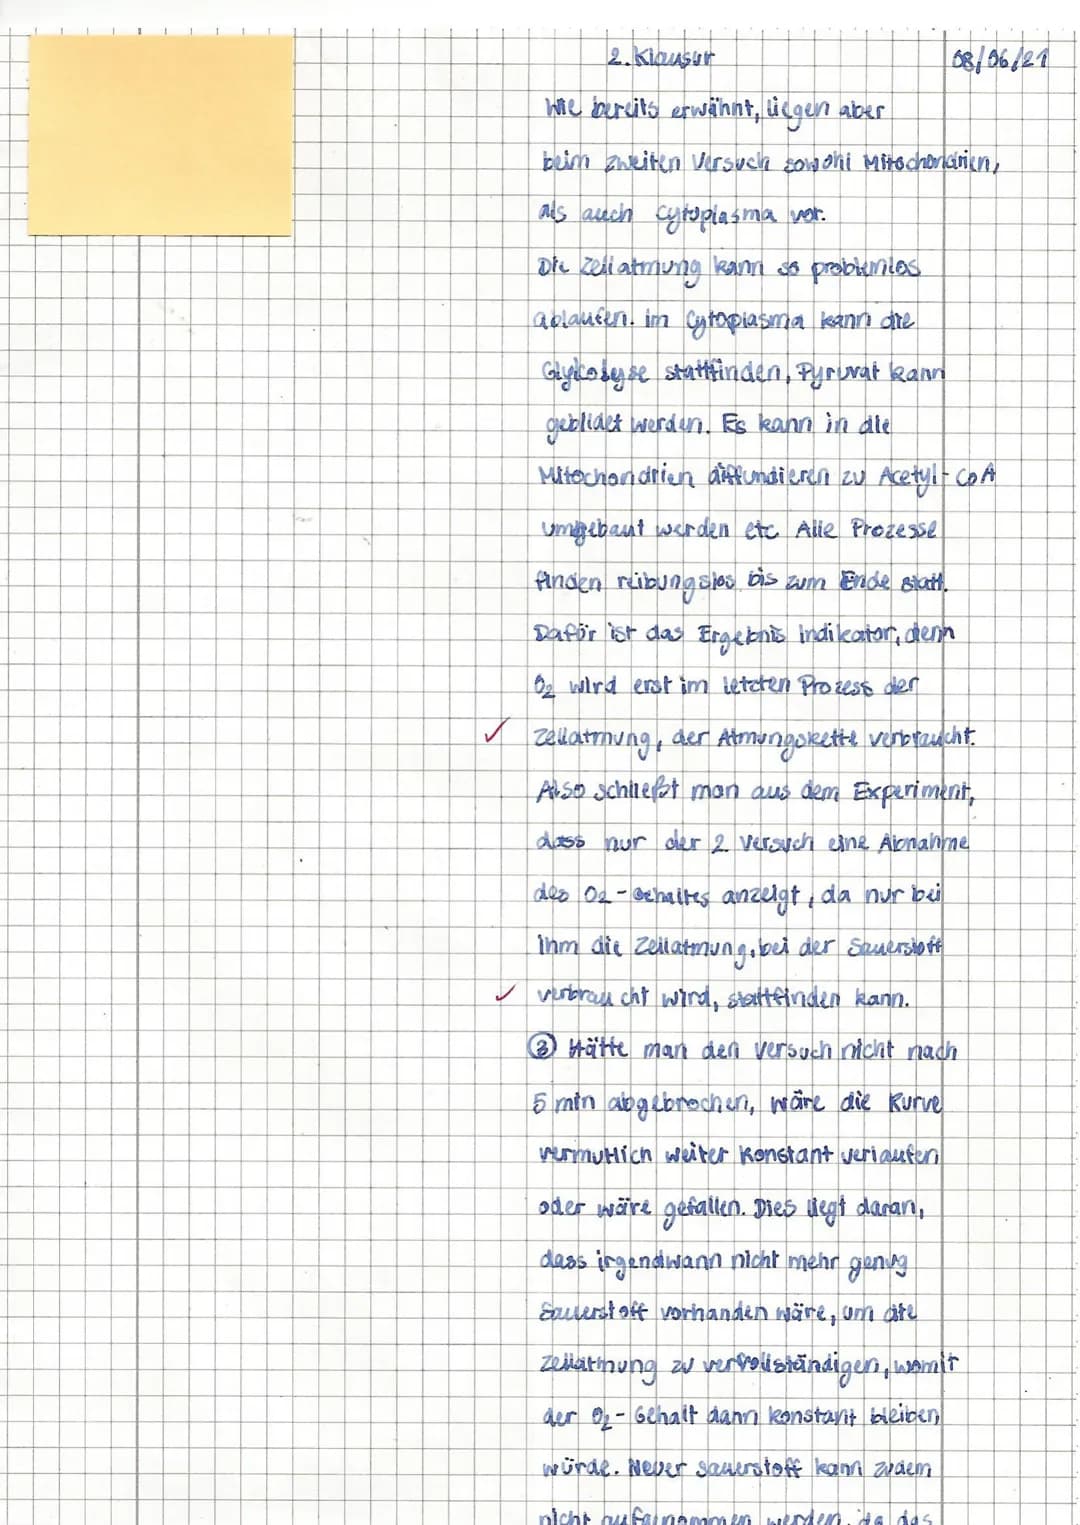 2. Klausur 08/06/21
Wie bereits erwähnt, liegen aber
beim zweiten Versuch sowohl Mitochondrien,
als auch Cytoplasma vor.
Die Zellatmung kann so problemlos
ablaufen. Im Cytoplasma kann die
Glykolyse stattfinden, Pyruvat kann
gebildet werden. Es kann in die
Mitochondrien diffundieren zu Acetyl-CoA
umgebaut werden etc. Alle Prozesse
finden reibungslos bis zum Ende statt.
Dafür ist das Ergebnis Indikator, denn
O₂ wird erst im letzten Prozess der
✓ Zellatmung, der Atmungskette verbraucht.
Also schließt man aus dem Experiment,
dass nur der 2. Versuch eine Abnahme
des O₂-Gehaltes anzeigt, da nur bei
ihm die Zellatmung, bei der Sauerstoff
✓ verbraucht wird, stattfinden kann.
③ Hätte man den Versuch nicht nach
5 min abgebrochen, wäre die Kurve
vermutlich weiter konstant verlaufen
oder wäre gefallen. Dies liegt daran,
dass irgendwann nicht mehr genug
Sauerstoff vorhanden wäre, um die
Zellatmung zu vervollständigen, womit
der O₂-Gehalt dann konstant bleiben
würde. Neuer Sauerstoff kann zudem
nicht aufgenommen werden, da das